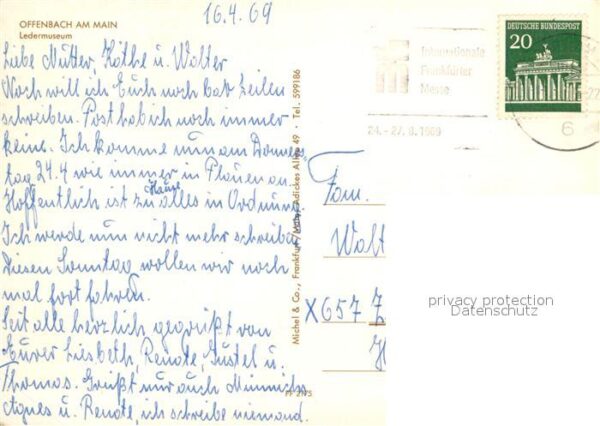 16.4.69
OFFENBACH AM MAIN
Ledermuseum
Liebe Mutter, Käthe u. Walter
Noch will ich Euch noch bar Zeilen
schreiben. Post hab ich noch immer
keine. Ich komme nun am Donners
tag 24.4 wie immer in Plauen an.
Hoffentlich ist zu Hause alles in Ordnung.
Ich werde nun nicht mehr schreiben
Diesen Sonntag wollen wir noch
mal fort fahren.
Seit alle herzlich gegrüßt von
Eurer Liesbeth, Renate, Gustel u.
Thomas. Grüßt nur auch
Agnes u. Renate, ich schreibe niemand.
Michel & Co., Frankfurt/Main, Adickes Allee 49 · Tel. 599186
DEUTSCHE BUNDESPOST
20
Internationale
Frankfurter
Messe
24.-27. 8. 1969
6
Fam.
Walt
X657 Z
privacy protection
Datenschutz